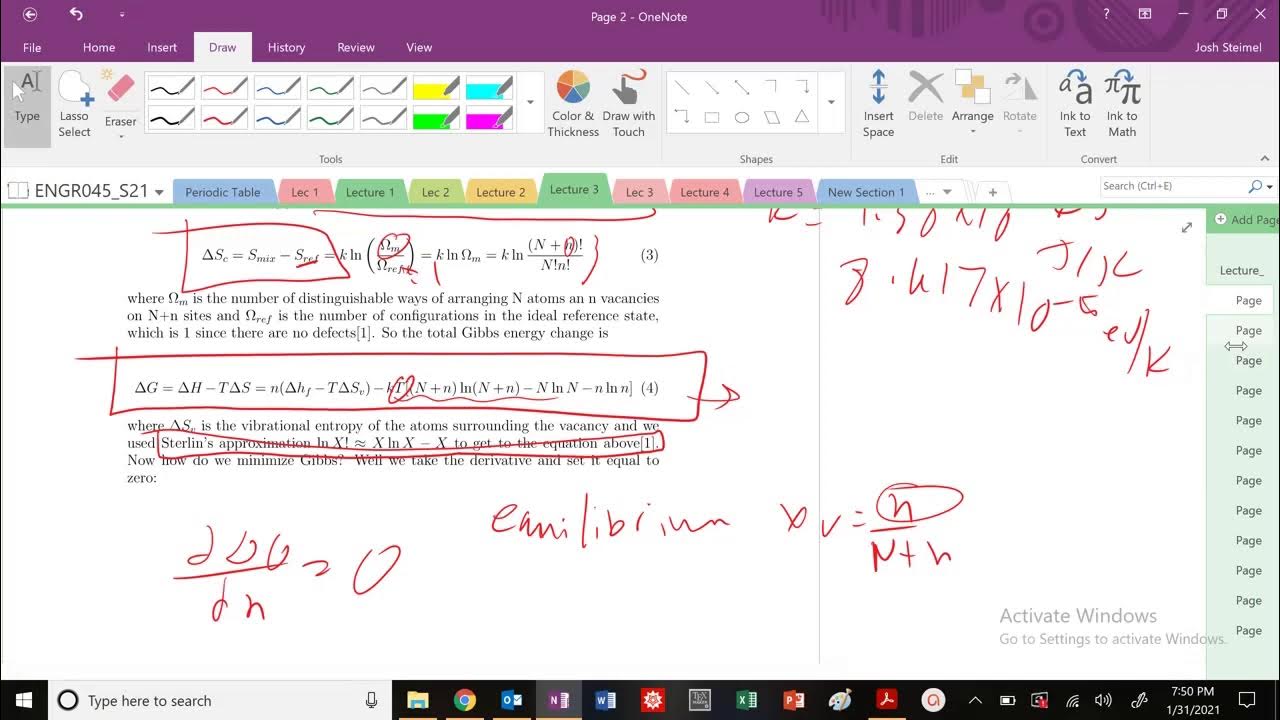 Page 2 - OneNote
Josh Steimel
File Home Insert Draw History Review View
Type
Lasso Select
Eraser
Color & Thickness
Draw with Touch
Insert Space
Delete
Arrange
Rotate
Ink to Text
Ink to Math
Tools
Shapes
Edit
Convert
ENGR045_S21
Periodic Table Lec 1 Lecture 1 Lec 2 Lecture 2 Lecture 3 Lec 3 Lecture 4 Lecture 5 New Section 1 ...
Search (Ctrl+E)
Add Page
Lecture_
Page
Page
Page
Page
Page
Page
Page
Page
Page
Page
Page
Page
J/K
eV/K
ΔS_c = S_mix − S_ref = k ln (Ω_m / Ω_ref) = k ln Ω_m = k ln (N + n)! / N!n! (3)
1
where Ω_m is the number of distinguishable ways of arranging N atoms an n vacancies
on N+n sites and Ω_ref is the number of configurations in the ideal reference state,
which is 1 since there are no defects[1]. So the total Gibbs energy change is
ΔG = ΔH − TΔS = n(Δh_f − TΔS_v) − kT[(N + n) ln(N + n) − N ln N − n ln n] (4)
where ΔS_v is the vibrational entropy of the atoms surrounding the vacancy and we
used Sterlin's approximation ln X! ≈ X ln X − X to get to the equation above[1].
Now how do we minimize Gibbs? Well we take the derivative and set it equal to
zero:
∂ΔG / ∂n = 0
equilibrium x_v = n / N+n
Activate Windows
Go to Settings to activate Windows.
Type here to search
7:50 PM
1/31/2021